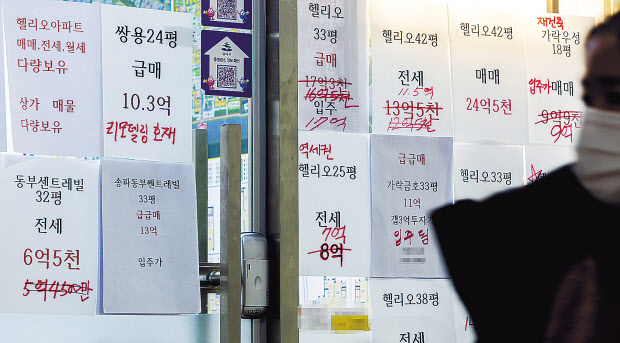 헬리오아파트
매매.전세.월세
다량보유
상가 매물
다량보유
쌍용24평
급매
10.3억
리모델링 호재
동부센트레빌
32평
전세
6억5천
송파동부쎈트레빌
33평
급급매
13억
입주가
헬리오
33평
급매
17억3천
입주
17억
헬리오42평
전세
11.5억
13억5천
헬리오42평
매매
24억5천
재건축
가락우성
18평
입주가매매
9억9천
9억
역세권
헬리오25평
전세
7억
8억
급급매
가락금호33평
11억
갭3억투자가
입주 됨
헬리오33평
헬리오38평
전세